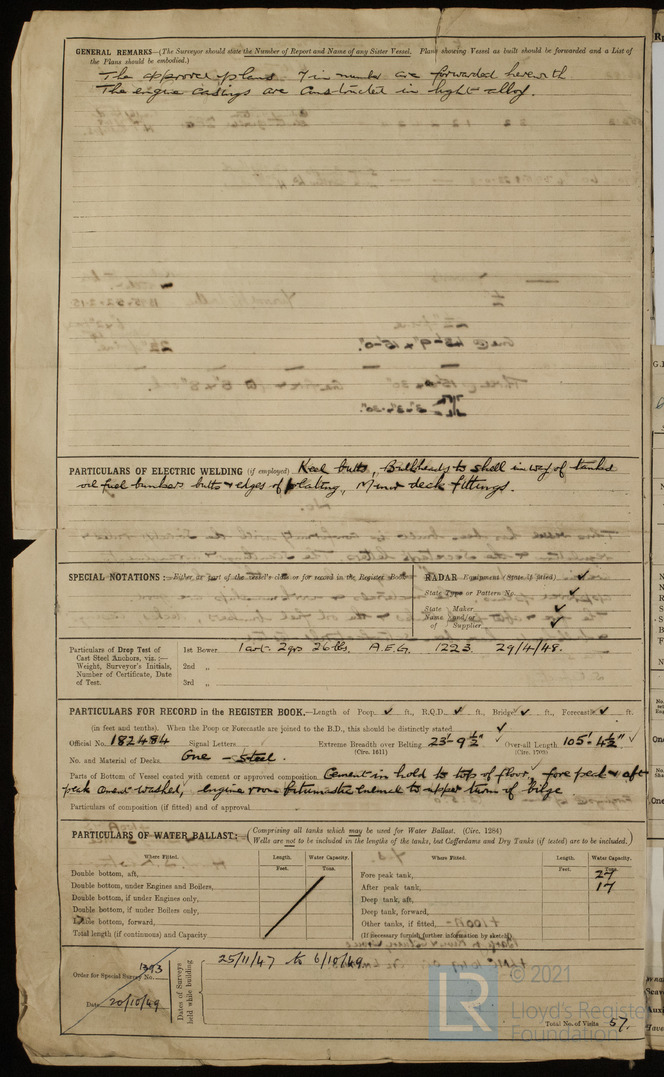 GENERAL REMARKS—(The Surveyor should state the Number of Report and Name of any Sister Vessel. Plans showing Vessel as built should be forwarded and a List of
the Plans should be embodied.)
The approved plans 7 in number are forwarded herewith
The engine casings are constructed in light alloy.
PARTICULARS OF ELECTRIC WELDING (if employed) Keel butts, Bulkheads to shell in way of tanks
oil fuel bunkers butts & edges of plating, Minor deck fittings.
SPECIAL NOTATIONS:—Either as part of the vessel's class or for record in the Register Book
RADAR Equipment (State if fitted) ✓
State Type or Pattern No. ✓
State Name and/or of { Maker ✓
Supplier ✓
Particulars of Drop Test of
Cast Steel Anchors, viz.:—
Weight, Surveyor's Initials,
Number of Certificate, Date
of Test.
1st Bower 1 cwt. 2qrs 26 lbs. A.E.G. 1223 29/4/48.
2nd „
3rd „
PARTICULARS FOR RECORD in the REGISTER BOOK.—Length of Poop ✓ ft., R.Q.D. ✓ ft., Bridge ✓ ft., Forecastle ✓ ft.
(in feet and tenths). When the Poop or Forecastle are joined to the B.D., this should be distinctly stated ✓
Official No. 182484 Signal Letters Extreme Breadth over Belting 23'-9½" ✓ Over-all Length 105'-4½" ✓
(Circ. 1611) (Circ. 1703)
No. and Material of Decks One - Steel.
Parts of Bottom of Vessel coated with cement or approved composition Cement in hold to top of floor, fore peak & aft
peak cement washed, engine room bitumastic enamel to upper turn of bilge
Particulars of composition (if fitted) and of approval
PARTICULARS OF WATER BALLAST:— (Comprising all tanks which may be used for Water Ballast. (Circ. 1284)
Wells are not to be included in the lengths of the tanks, but Cofferdams and Dry Tanks (if tested) are to be included.)
Where Fitted. Length. Water Capacity. Where Fitted. Length. Water Capacity.
Feet. Tons. Feet. Tons.
Double bottom, aft, Fore peak tank, 27
Double bottom, under Engines and Boilers, After peak tank, 17
Double bottom, if under Engines only, Deep tank, aft,
Double bottom, if under Boilers only, Deep tank, forward,
Double bottom, forward, Other tanks, if fitted,
Total length (if continuous) and Capacity (If necessary furnish further information by sketch).
Order for Special Survey No. 1393
Date 20/10/49
Dates of Surveys
held while building
25/11/47 to 6/10/49
Total No. of Visits 57.
© 2021
LR
Lloyd's Register
Foundation